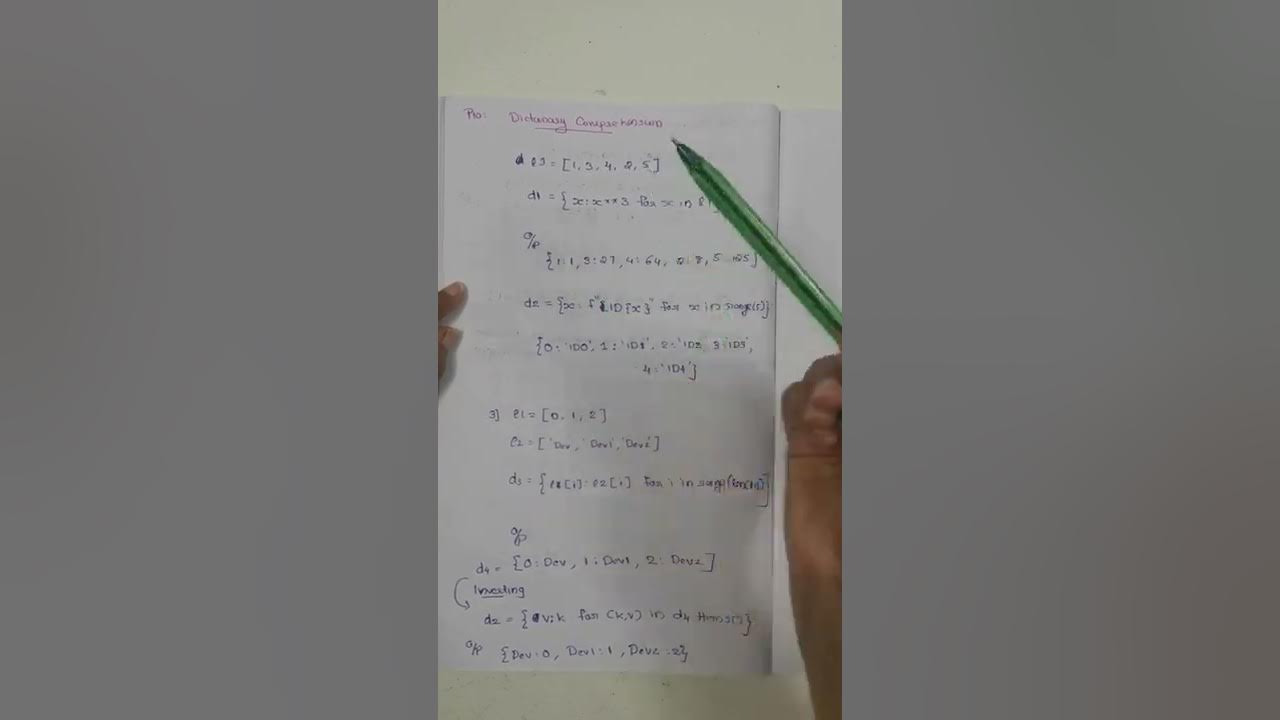 Pro: Dictionary Comprehension
l3 = [1, 3, 4, 2, 5]
d1 = {x: x**3 for x in l
o/p
{1:1, 3:27, 4:64, 2:8, 5:125}
d2 = {x: f"ID{x}" for x in range(5)}
{0:'ID0', 1:'ID1', 2:'ID2', 3:'ID3',
4:'ID4'}
3] l1 = [0, 1, 2]
l2 = ['Dev', 'Dev1', 'Dev2']
d3 = {l1[i]: l2[i] for i in range(len(l1))}
o/p
d4 = {0:Dev, 1:Dev1, 2:Dev2}
Inverting
d2 = {v:k for (k,v) in d4 items()}
o/p {Dev:0, Dev1:1, Dev2:2}